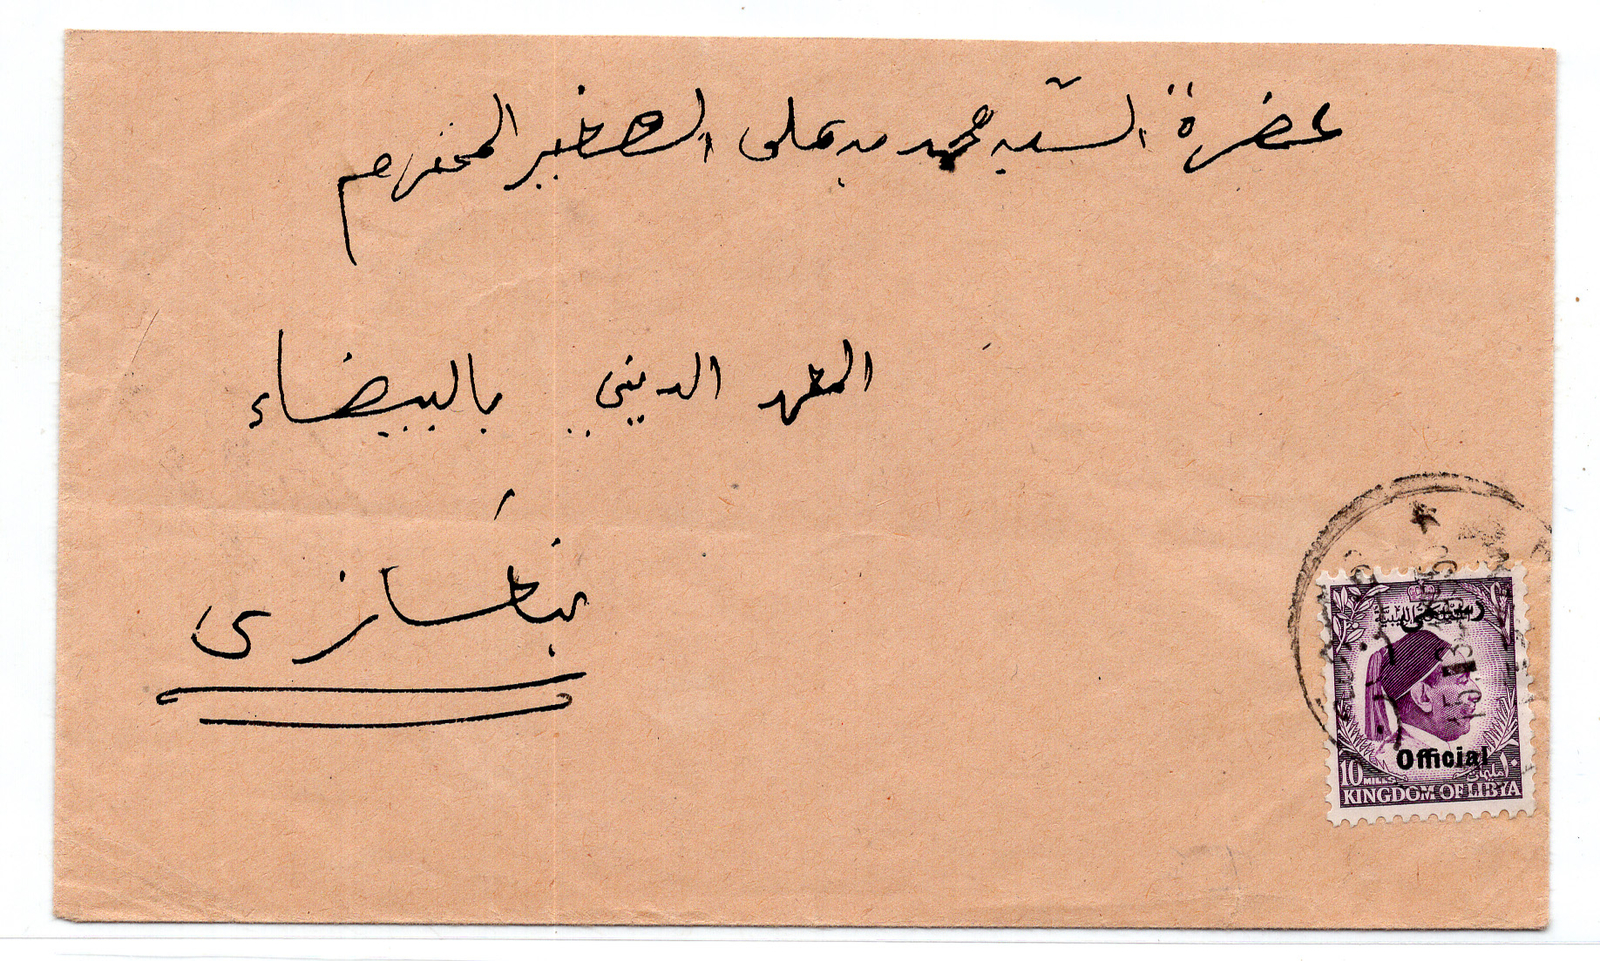 حضرة السيد محمد بن علي الصغير المحترم
المعهد الديني بالبيضاء
بنغازي
المملكة الليبية
رسمي
Official
10 MILLS ١٠ مليمات
KINGDOM OF LIBYA